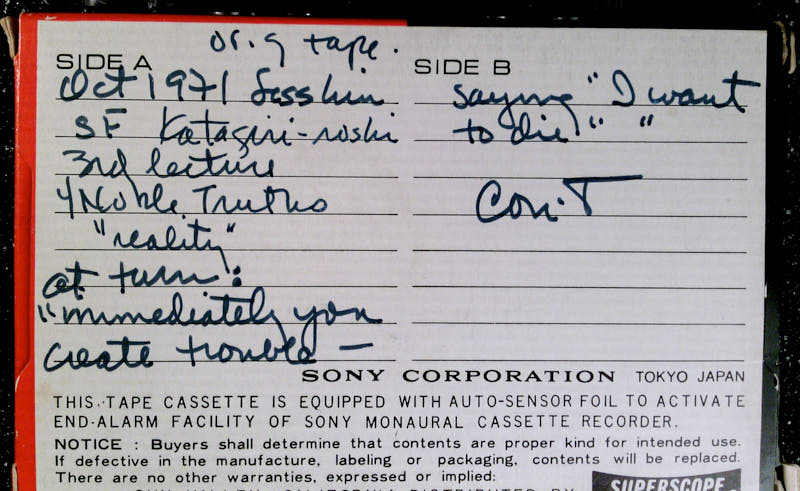 orig tape.
SIDE A
Oct 1971 Sesshin
SF Katagiri-roshi
3rd lecture
4 Noble Truths
"reality"
at turn:
"immediately you
create trouble —
SIDE B
saying "I want
to die!" "
Con.T
SONY CORPORATION TOKYO JAPAN
THIS TAPE CASSETTE IS EQUIPPED WITH AUTO-SENSOR FOIL TO ACTIVATE
END-ALARM FACILITY OF SONY MONAURAL CASSETTE RECORDER.
NOTICE : Buyers shall determine that contents are proper kind for intended use.
If defective in the manufacture, labeling or packaging, contents will be replaced.
There are no other warranties, expressed or implied:
SUN VALLEY, CALIFORNIA DISTRIBUTED BY
SUPERSCOPE